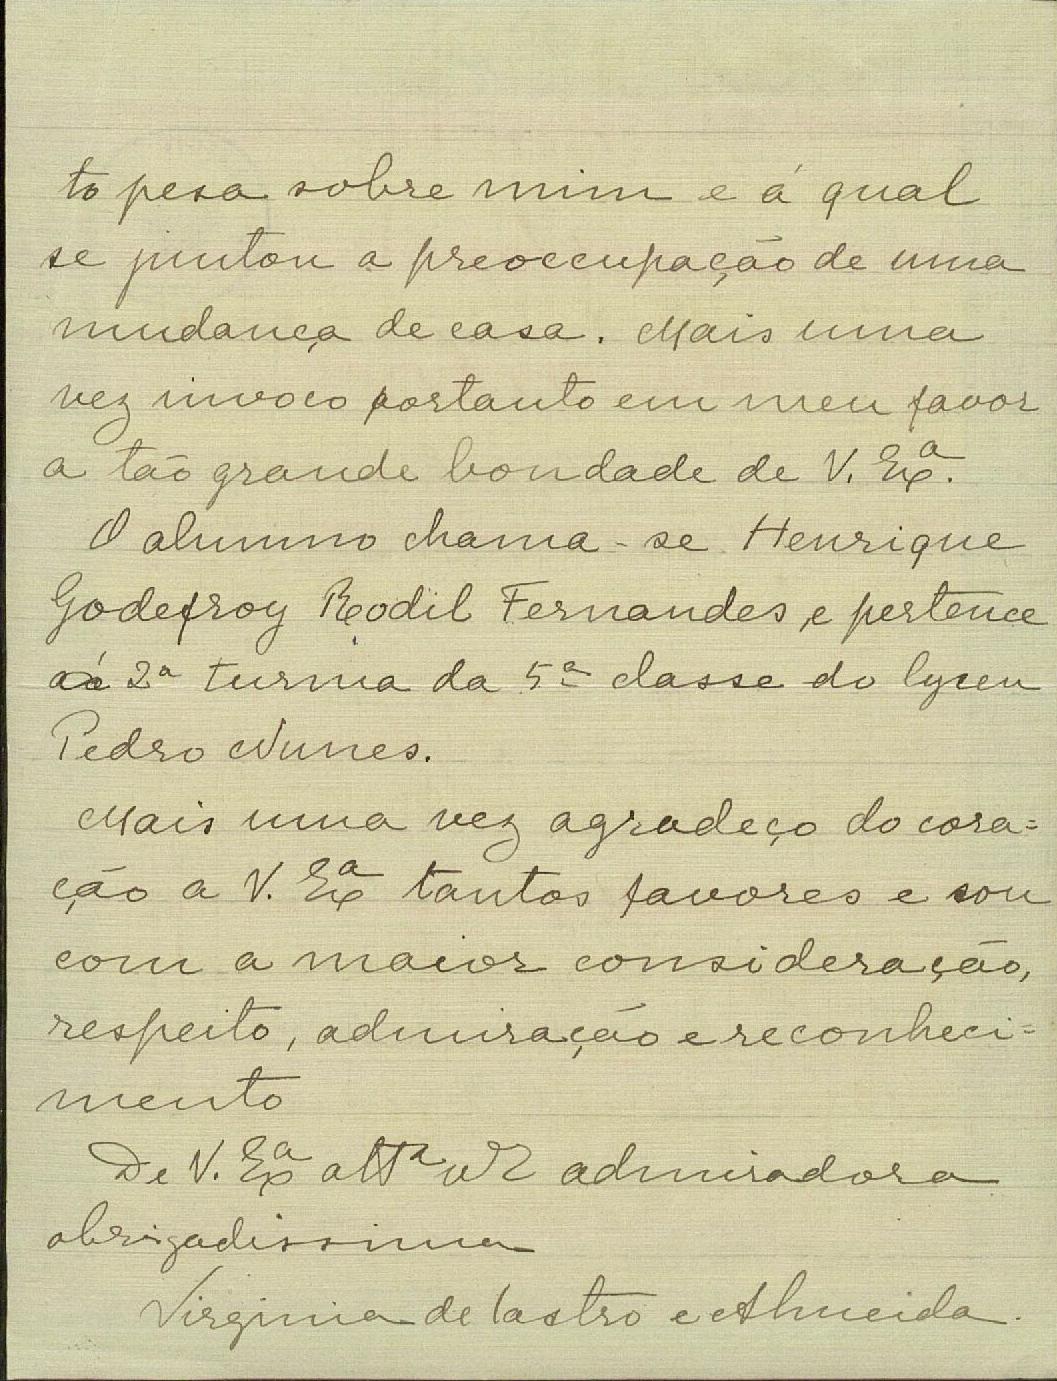 to pesa sobre mim e á qual
se juntou a preoccupação de uma
mudança de casa. Mais uma
vez invoco portanto em meu favor
a tão grande bondade de V. Exª.
O alumno chama-se Henrique
Godefroy Rodil Fernandes, e pertence
á 2ª turma da 5ª classe do lyceu
Pedro Nunes.
Mais uma vez agradeço do cora=
ção a V. Exª tantos favores e sou
com a maior consideração,
respeito, admiração e reconheci=
mento
De V. Exª attª admiradora
obrigadissima
Virginia de Castro e Almeida.